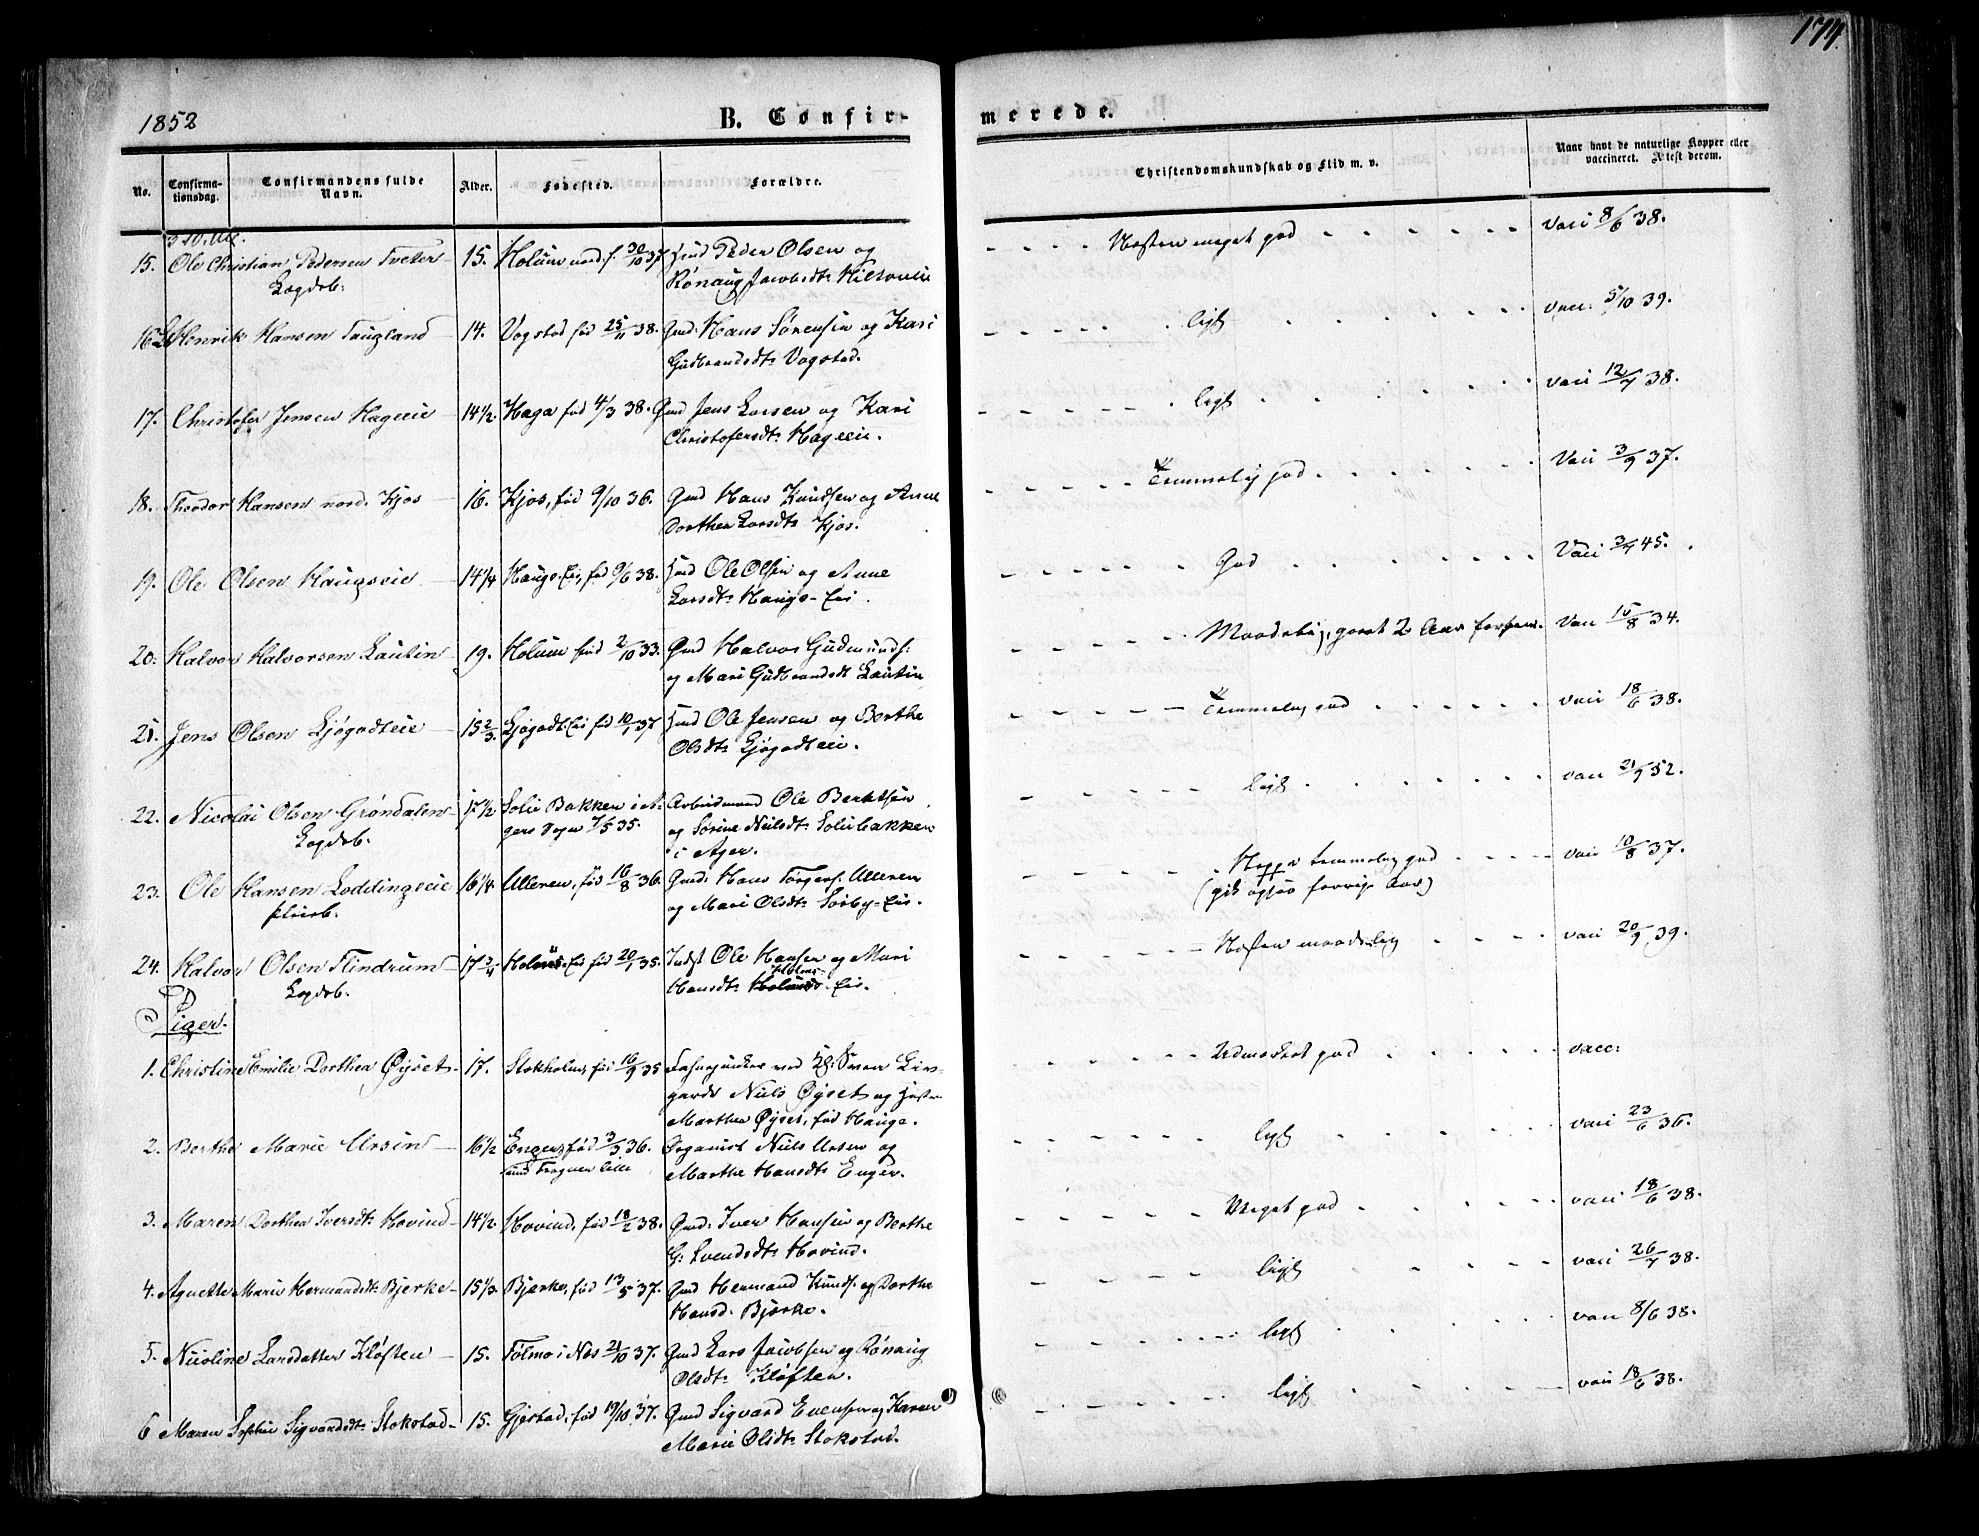 174.
1852
B. Confir-
merede.
No.
Confirma-
tionsdag.
Confirmandens fulde
Navn.
Alder.
Fødested.
Forældre.
Christendomskundskab og Flid m. v.
Naar havt de naturlige Kopper eller
vaccineret. Attest derom.
15. Ole Christian Pedersen Tveter 15. Holum nord. f. 30/10 37 Gmd Peder Olsen og
Lægdeb: Rønaug Jacobsdtr
Næsten meget god vacc 8/6 38.
16. Henrik Hansen Taugland 14. Vogstad fød 25/11 38. Gmd. Hans Sørensen og Kari
Gudbrandsdtr Vogstad.
ligl vacc. 5/10 39.
17. Christofer Jensen Hageeie 14 1/2. Haga fød 4/3 38. Gmd Jens Larsen og Kari
Christofersdtr Hageeie.
ligl vacc 12/7 38.
18. Theodor Hansen nord. Kjos 16. Kjos, fød 9/10 36. Gmd Hans Knudsen og Anne
Dorthea Larsdtr Kjos.
Temmelig god Vacc 3/9 37.
19. Ole Olsen Haugseie 14 1/4 Haugs-Eie, fød 9/6 38. Hmd Ole Olsen og Anne
Larsdtr Haugs-Eie.
God Vacc 3/7 45.
20. Halvor Halvorsen Lautin 19. Holum fød 2/10 33. Gmd Halvor Gudmunds:
og Mari Gudbrandsdt Lautin
Maadelig, gaaet 2 Aar forhen. Vacc 15/8 34.
21. Jens Olsen Ljøgodteie 15 2/3. Ljøgodt-Eie fød 10/1 37 Hmd Ole Jensen og Berthe
Olsdtr Ljøgodteie.
Temmelig god vacc 18/6 38.
22. Nicolai Olsen Grøndalen 17 1/2 Solie Bakken i A-
Lægdeb. gers Sogn 7/5 35. Arbeidsmand Ole Berntsen
og Sørine Nielsdtr Soliebakken
i Ager.
ligl vacc 21/9 52.
23. Ole Hansen Loddingeeie 16 1/4. Ulleren, fød 16/8 36. Gmd: Hans Torgers: Ulleren
Pleieb. og Mari Olsdtr Sørby-Eie.
Neppe temmelig god vacc 10/8 37.
(gik ogsaa forrige Aar)
24. Halvor Olsen Flindrum 17 3/4 Holms-Eie fød 20/1 35. Indst Ole Hansen og Mari
Lægdeb. Hansdtr Holms-Eie.
Næsten maadelig vacc 20/9 39.
Piger.
1. Christine Emilie Dorthea Øyset 17. Stokholm, fød 16/9 35
gards Niels Øyset og Hustru
Marthea Øyset, fød Hauge.
Udmærket god vacc:
2. Berthe Marie Ursin 16 1/2 Enger, fød 3/3 36. Organist Niels Ursin og
Marthe Hansdtr Enger.
ligl vacc 23/6 36.
3. Maren Dorthea Iversdtr Hovind 14 1/2 Hovind, fød 18/2 38. Gmd: Iver Hansen og Berthe
G: Svendsdtr Hovind.
Meget god vacc 18/6 38.
4. Agnette Marie Hermandsdtr Bjerke 15 1/3 Bjerke, fød 13/5 37. Gmd Hermand Knuds: og Dorthe
Hansd. Bjerke.
ligl vacc 26/7 38.
5. Nicoline Larsdatter Kløften 15. Tølmo i Nes 21/10 37. Gmd Lars Jacobsen og Rønaug
Olsdtr Kløften.
ligl vacc 8/6 38.
6 Maren Sophie Sigvardsdtr Stokstad 15. Gjestad, fød 19/10 37. Gmd Sigvard Evensen og Karen
Marie Olsdtr Stokstad.
ligl vacc 18/6 38.